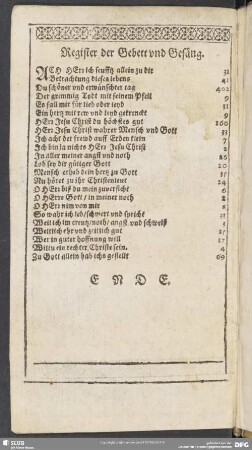 Register der Gebett vnd Gesäng.
ACH HErr ich seufftz allein zu dir 32
Betrachtung dieses lebens 41
Du schöner vnd erwünschter tag 402
Der grimmig Todt mit seinem Pfeil 9
Es fall mir für lieb oder leyd
Ein hertz mit rew vnd leyd gekrenckt 9
HErr Jesu Christ du höchstes gut 160
HErr Jesu Christ wahrer Mensch vnd Gott 33
Ich acht der frewd auff Erden klein 7
Ich bin ja nichts HErr Jesu Christ 2
In aller meiner angst vnd noth
Lob sey dir gütiger Gott 20
Mensch erheb dein hertz zu Gott 37
Nu höret zu ihr Christenleut 24
O HErr biß du mein zuversicht 6
O HErre Gott / in meiner noth 2
O HErr nim von mir 8
So wahr ich leb/schwert vnd spricht
Weil ich im creutz/noth/ angst vnd schweiß
Weltlich ehr vnd zeitlich gut 27
Wer in guter hoffnung will 17
Wiltu ein rechter Christe sein. 4
Zu Gott allein hab ichs gestellt 69
E N D E.
SLUB
DFG